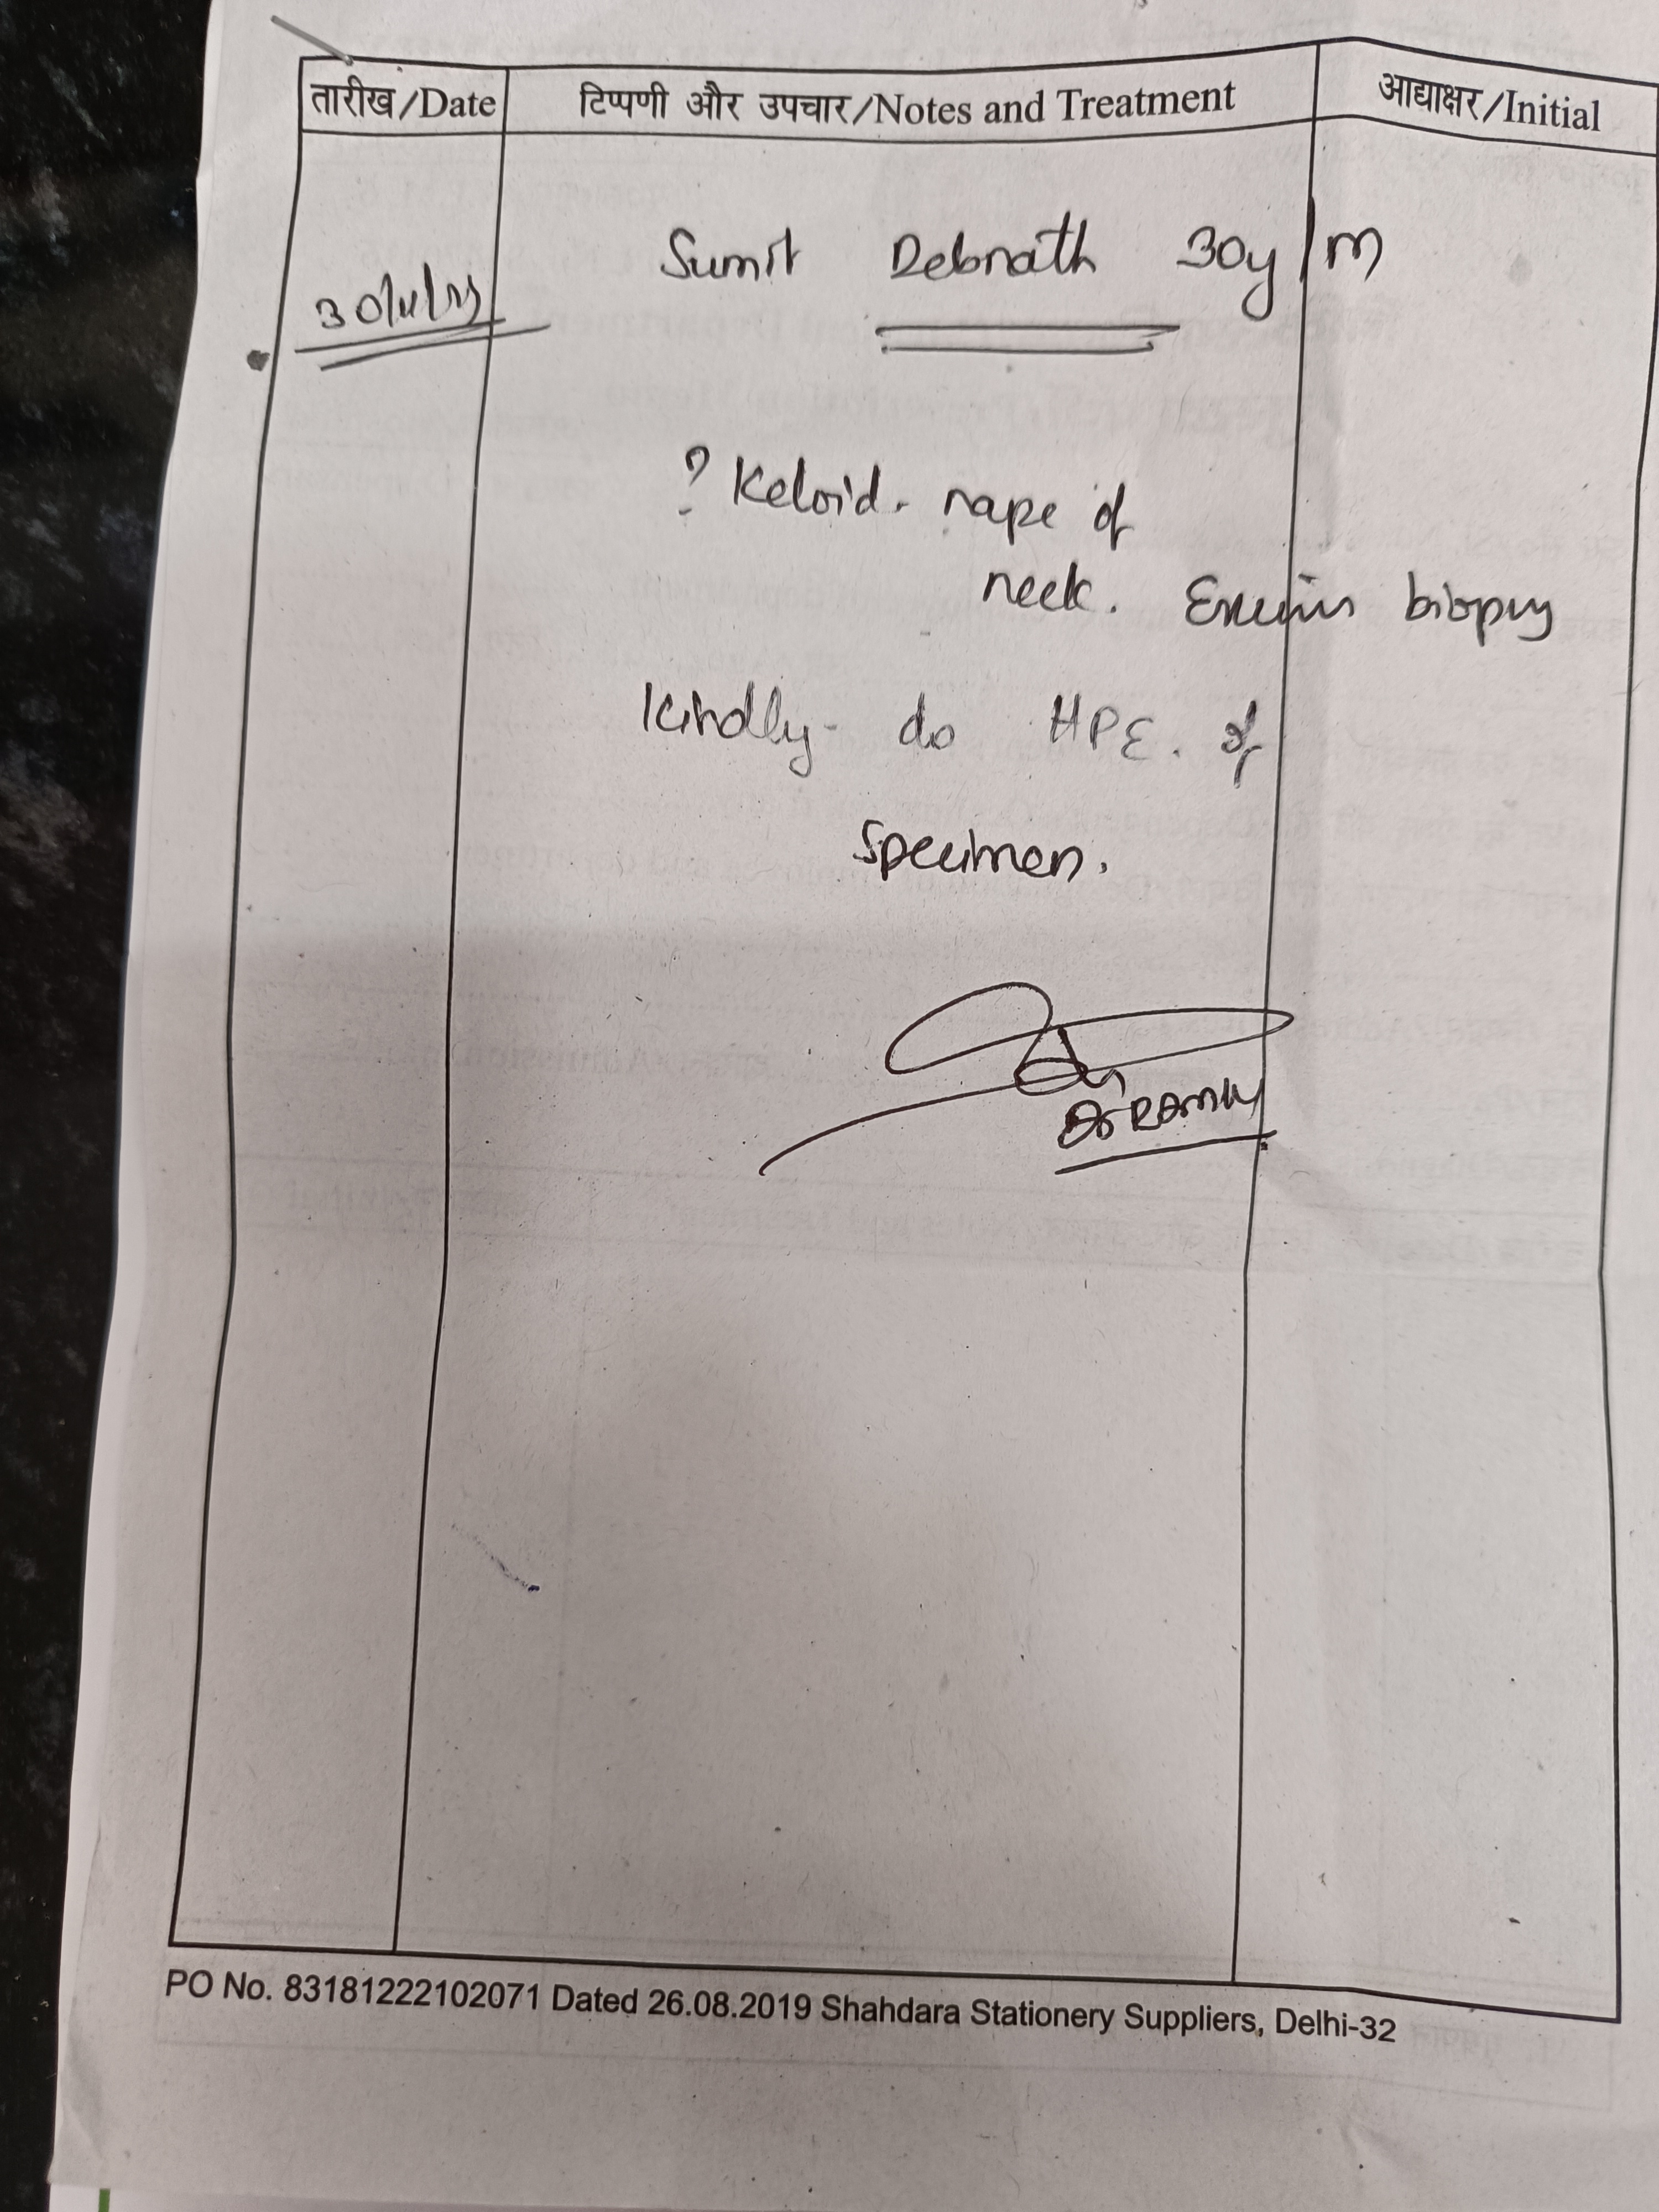 तारीख/Date टिप्पणी और उपचार/Notes and Treatment आद्याक्षर/Initial
Sumit Debnath 30y/m
? Keloid. nape of
neck. Excision biopsy
Kindly do HPE. of
Specimen.
PO No. 83181222102071 Dated 26.08.2019 Shahdara Stationery Suppliers, Delhi-32